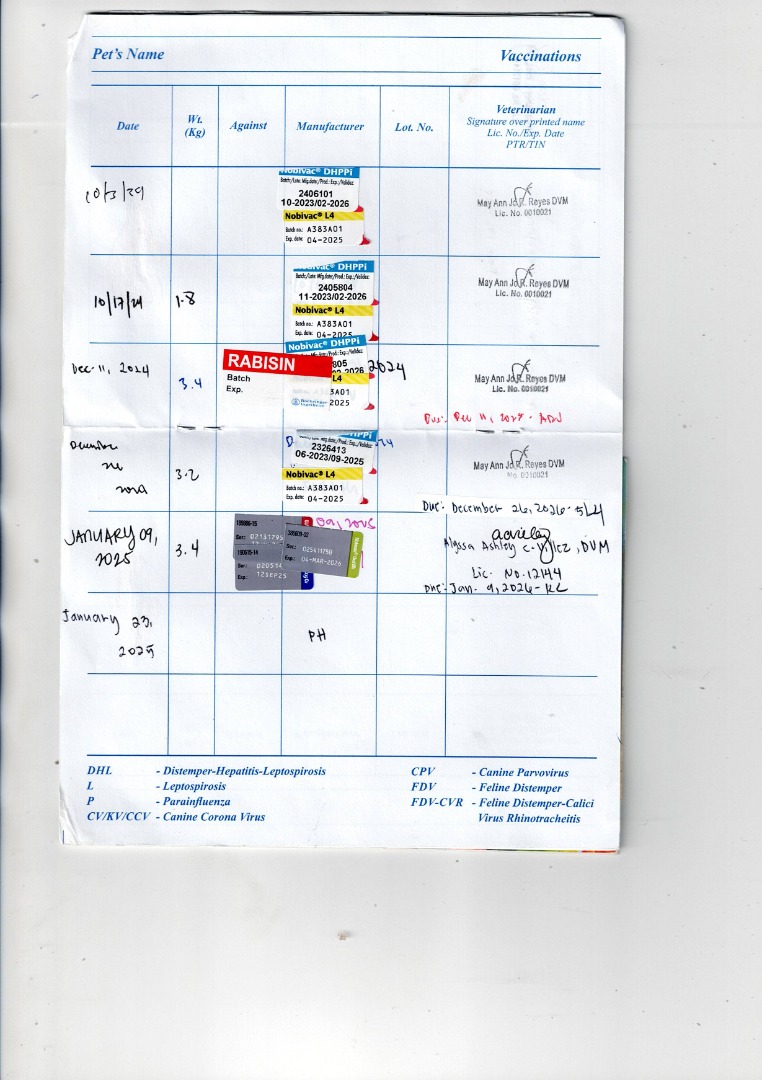 Pet's Name
Vaccinations
Date
Wt.
(Kg)
Against
Manufacturer
Lot. No.
Veterinarian
Signature over printed name
Lic. No./Exp. Date
PTR/TIN
10/3/24
Nobivac® DHPPi
Batch/Lote: Mfg.date/Prod.: Exp./Validez:
2406101
10-2023/02-2026
Nobivac® L4
Batch no.: A383A01
Exp. date: 04-2025
May Ann Jo R. Reyes DVM
Lic. No. 0010021
10/17/24
1.8
Nobivac® DHPPi
Batch/Lote: Mfg.date/Prod.: Exp./Validez:
2405804
11-2023/02-2026
Nobivac® L4
Batch no.: A383A01
Exp. date: 04-2025
May Ann Jo R. Reyes DVM
Lic. No. 0010021
Dec. 11, 2024
3.4
RABISIN
Batch
Exp.
Nobivac® DHPPi
Mfg.date/Prod.: Exp./Validez:
805
02-2026
L4
3A01
2025
2024
May Ann Jo R. Reyes DVM
Lic. No. 0010021
Due: Dec 11, 2025
December
2024
3.2
DHPPi
2326413
06-2023/09-2025
Nobivac® L4
Batch no.: A383A01
Exp. date: 04-2025
May Ann Jo R. Reyes DVM
No. 0010021
Due: December 26, 2026
JANUARY 09,
2025
3.4
09, 2025
Ser: 02131795
Ser: 02541175B
Exp: 04-MAR-2026
Ser: 020514
Exp: 12SEP25
Alyssa Ashley C. DVM
Lic. No. 12144
Due: Jan. 9, 2026
January 23,
2025
PH
DHL - Distemper-Hepatitis-Leptospirosis
L - Leptospirosis
P - Parainfluenza
CV/KV/CCV - Canine Corona Virus
CPV - Canine Parvovirus
FDV - Feline Distemper
FDV-CVR - Feline Distemper-Calici
Virus Rhinotracheitis